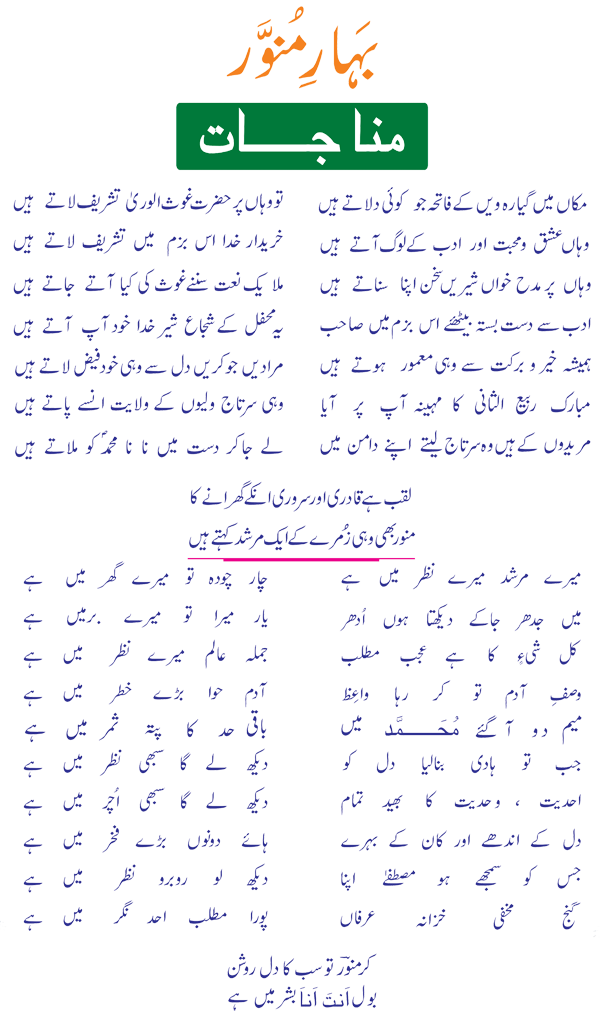 بہارِ مُنوَّر
مناجات
مکاں میں گیارہ ویں کے فاتحہ جو کوئی دلاتے ہیں تو وہاں پر حضرت غوث الوریٰ تشریف لاتے ہیں
وہاں عشق و محبت اور ادب کے لوگ آتے ہیں خریدار خدا اس بزم میں تشریف لاتے ہیں
وہاں پر مدح خواں شیریں سخن اپنا سناتے ہیں ملایک نعت سننے غوث کی کیا آتے جاتے ہیں
ادب سے دست بستہ بیٹھئے اس بزم میں صاحب یہ محفل کے شجاع شیر خدا خود آپ آتے ہیں
ہمیشہ خیر و برکت سے وہی معمور ہوتے ہیں مرادیں جو کریں دل سے وہی خود فیض لاتے ہیں
مبارک ربیع الثانی کا مہینہ آپ پر آیا وہی سرتاج ولیوں کے ولایت انسے پاتے ہیں
مریدوں کے ہیں وہ سرتاج لیتے اپنے دامن میں لے جاکر دست میں نانا محمدؐ کو ملاتے ہیں
لقب ہے قادری اور سروری انکے گھرانے کا
منور بھی وہی زُمرے کے ایک مرشد کہتے ہیں
میرے مرشد میرے نظر میں ہے چار چودہ تو میرے گھر میں ہے
میں جدھر جاکے دیکھتا ہوں اُدھر یار میرا تو میرے برمیں ہے
کل شیءِ کا ہے عجب مطلب جملہ عالم میرے نظر میں ہے
وصفِ آدم تو کر رہا واعِظ آدم حوا بڑے خطر میں ہے
میم دو آگئے مُحَمَّد میں باقی حد کا پتہ ثمر میں ہے
جب تو ہادی بنالیا دل کو دیکھ لے گا سبھی نظر میں ہے
احدیت ، وحدیت کا بھید تمام دیکھ لے گا سبھی اُچر میں ہے
دل کے اندھے اور کان کے بہرے ہائے دونوں بڑے فخر میں ہے
جس کو سمجھے ہو مصطفےٰ اپنا دیکھ لو روبرو نظر میں ہے
گنج مخفی خزانہ عرفاں پورا مطلب احد نگر میں ہے
کر منوّر تو سب کا دل روشن
بول اَنتَ اَنَا بشر میں ہے